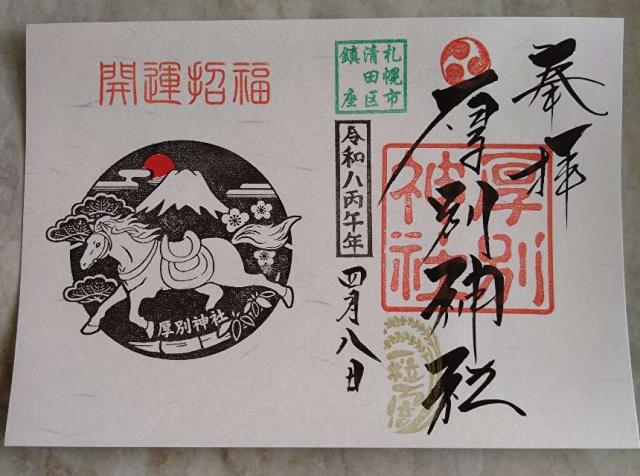 奉拝
厚別神社
厚別
神社
札幌市
清田区
鎮座
令和八丙午年
四月八日
一粒万倍
開運招福
厚別神社